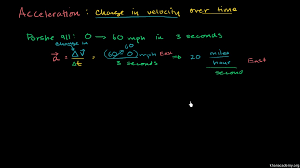 Acceleration: change in velocity over time
Porshe 911: 0 → 60 mph in 3 seconds
change in
60
a = Δv / Δt = (60 - 0) mph East / 3 seconds → 20 miles / hour / second East
khanacademy.org